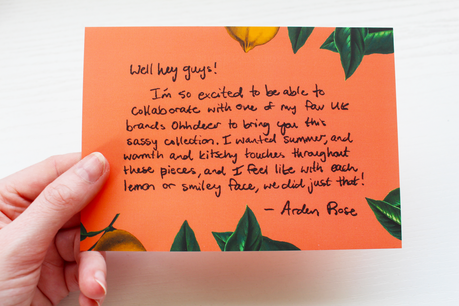 Well hey guys!
I'm so excited to be able to
collaborate with one of my fav UK
brands Ohhdeer to bring you this
sassy collection. I wanted summer, and
warmth and kitschy touches throughout
these pieces, and I feel like with each
lemon or smiley face, we did just that!
- Arden Rose